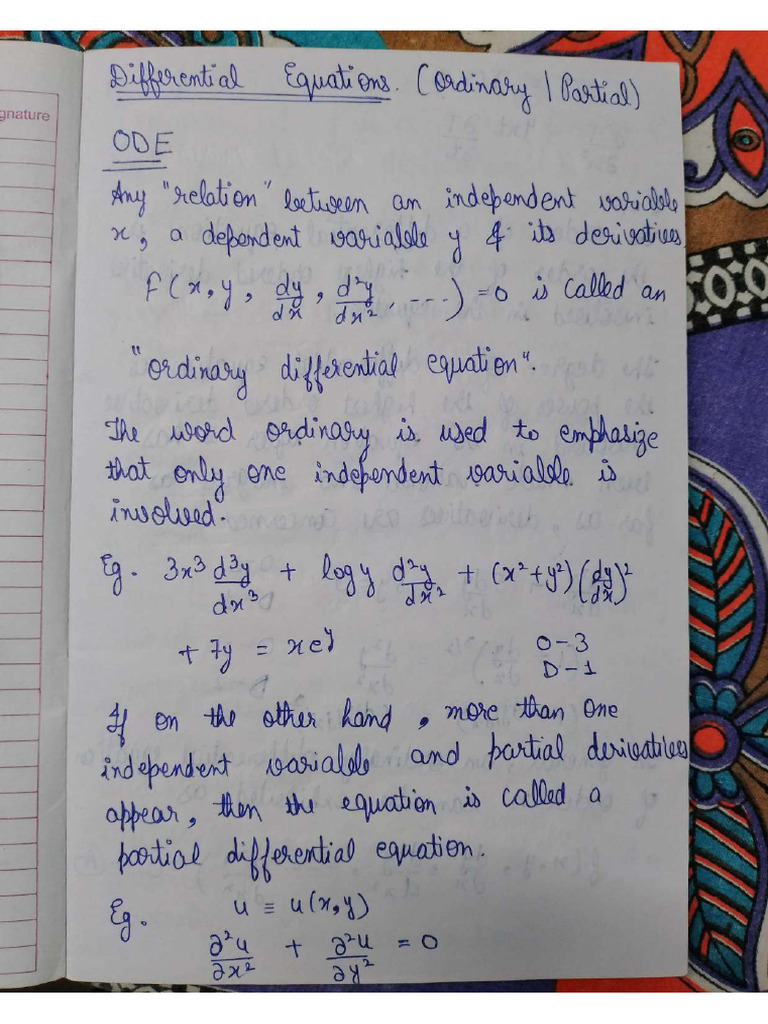 gnature
Differential Equations. (Ordinary / Partial)
ODE
Any "relation" between an independent variable
x, a dependent variable y & its derivatives
F(x, y, dy/dx, d²y/dx², ----) = 0 is called an
"ordinary differential equation".
The word ordinary is used to emphasize
that only one independent variable is
involved.
Eg. 3x³ d³y/dx³ + log y d²y/dx² + (x²+y²)(dy/dx)²
+ 7y = xeʸ O-3
D-1
If on the other hand, more than one
independent variable and partial derivatives
appear, then the equation is called a
partial differential equation.
Eg. u ≡ u(x,y)
∂²u/∂x² + ∂²u/∂y² = 0